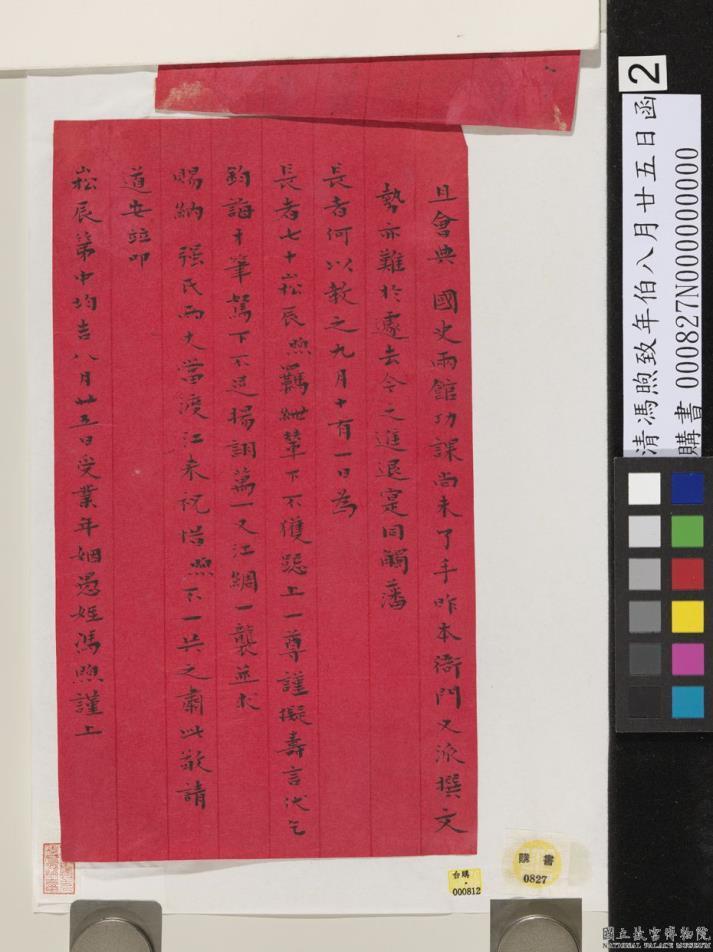 且會典 國史兩館功課尚未了手昨本衙門又派撰文
勢亦難於遽去令之進退寔同觸藩
長者何以教之九月十有一日為
長者七十崧辰煦羈紲輦下不獲躋上一尊謹擬壽言代乞
鈞誨才筆駑下不足揚詡萬一又江綢一襲並求
賜納 强氏兩丈當渡江來祝惜煦不一共之肅此敬請
道安竝叩
崧辰第中均吉八月廿五日受業年姻愚姪馮煦謹上
2
清馮煦致年伯八月廿五日函
購書 000827N000000000
購書
0827
台購
000812
國立故宮博物院
NATIONAL PALACE MUSEUM